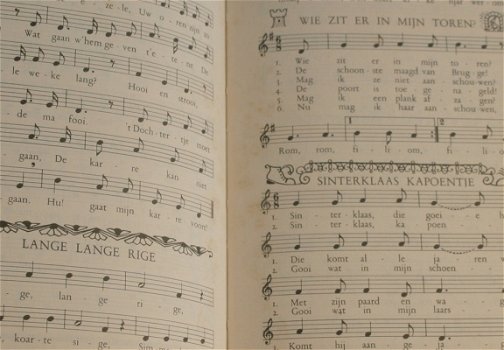 ze-le, Uw o-ren zijn to
Wat gaan w'hem ge-ven t'e-ten? De
le we-ke lang? Hooi en strooi,
de ma fooi. 't Doch-ter-tje moet
gaan, De kar-re kan niet
gaan. Hu! gaat mijn kar-re voort!
LANGE LANGE RIGE
ge, lan-ge ri-ge,
koar-te si-ge,
WIE ZIT ER IN MIJN TOREN?
1. Wie zit er in mijn to-ren?
2. De schoon-ste maagd van Brug-ge!
3. Mag ik ze niet aan-schou-wen?
4. De poort is toe ge-na-geld!
5. Mag ik een plank af-za-gen?
6. Nu mag ik haar aan-schou-wen,
1 2
Rom, rom, fi-le om, fi-
SINTERKLAAS KAPOENTJE
1. Sin-ter-klaas, die goei-e
2. Sin-ter-klaas, ka-poen
1. Die komt al-le ja-ren
2. Gooi wat in mijn schoen-
1. Met zijn paard en wa-
2. Gooi wat in mijn laars
1. Komt hij aan-ge-ja-